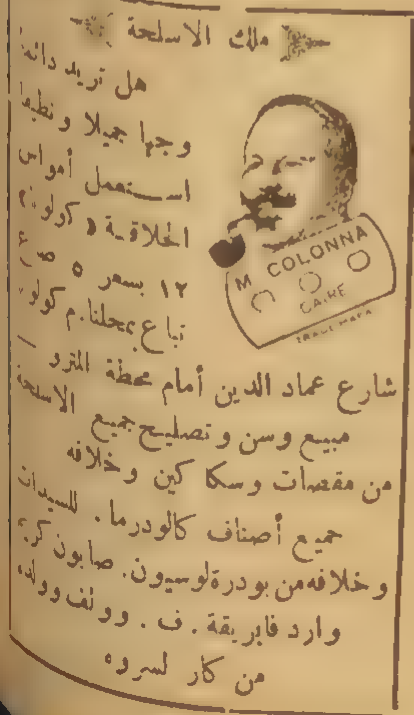 ملك الاسلحة
هل تريد دائما
وجها جميلا ونظيفا
استعمل أمواس
الحلاقة « كولونا »
١٢ بسعر ٥ ص غ
تباع بمحلنا. م كولو
M COLONNA
CAIRE
TRADE MARK
شارع عماد الدين أمام محطة المترو —
مبيع وسن وتصليح جميع الاسلحة
من مقصات وسكاكين وخلافه
جميع أصناف كالودرما. للسيدات
وخلافه من بودرة لوسيون. صابون كريم
وارد فابريقة. ف. وولف وولده
من كار لسروه